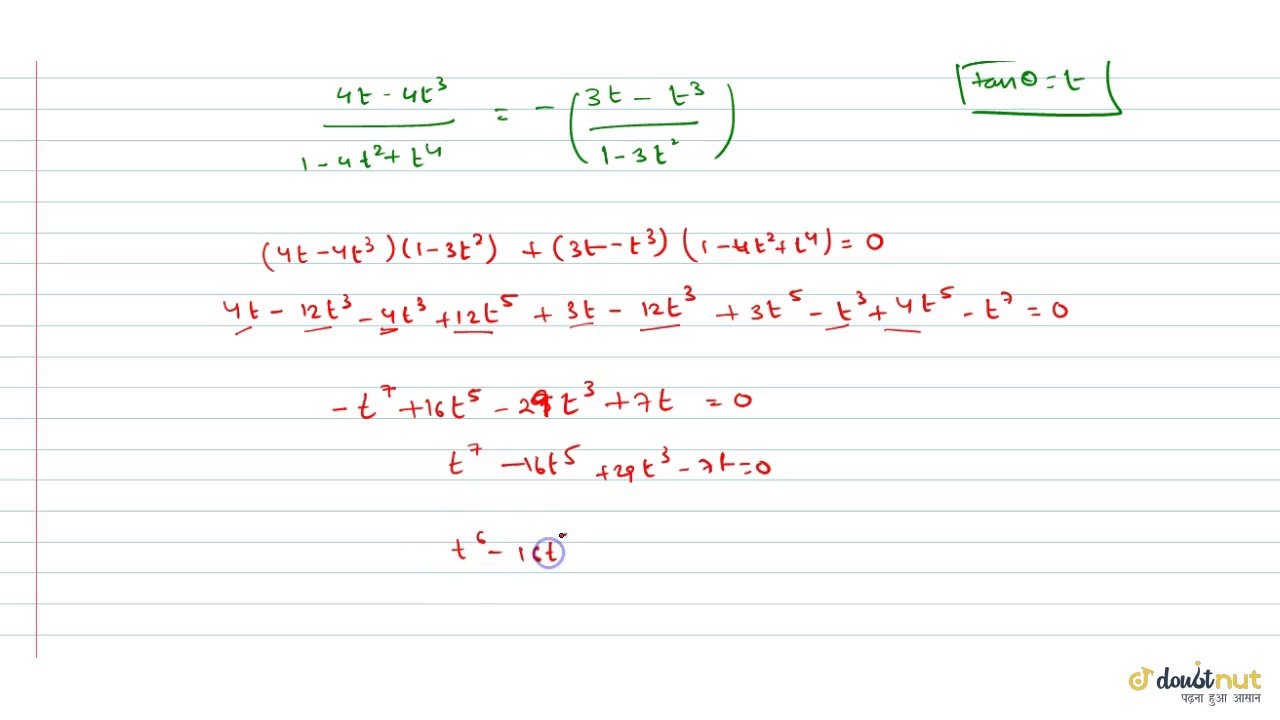 tanθ = t
4t - 4t³ / 1 - 4t² + t⁴ = - (3t - t³ / 1 - 3t²)
(4t - 4t³)(1 - 3t²) + (3t - t³)(1 - 4t² + t⁴) = 0
4t - 12t³ - 4t³ + 12t⁵ + 3t - 12t³ + 3t⁵ - t³ + 4t⁵ - t⁷ = 0
- t⁷ + 16t⁵ - 29t³ + 7t = 0
t⁷ - 16t⁵ + 29t³ - 7t = 0
t⁶ - 16t
doubtnut
पढ़ना हुआ आसान